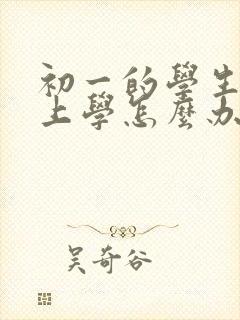 初一的學生
上學怎麼办
吴奇谷